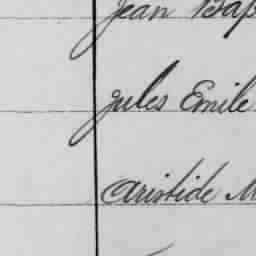 Jean Bap
Jules Emile
Aristide M